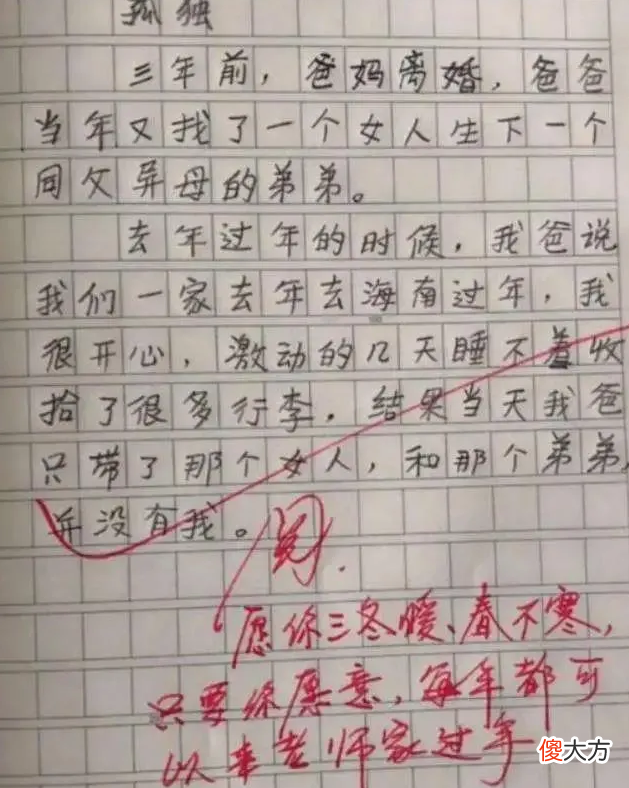 孤独
三年前，爸妈离婚，爸爸
当年又找了一个女人生下一个
同父异母的弟弟。
去年过年的时候，我爸说
我们一家去年去海南过年，我
很开心，激动的几天睡不着收
拾了很多行李，结果当天我爸
只带了那个女人，和那个弟弟，
并没有我。
阅.
愿你三冬暖、春不寒，
只要你愿意，每年都可
以来老师家过年
傻大方